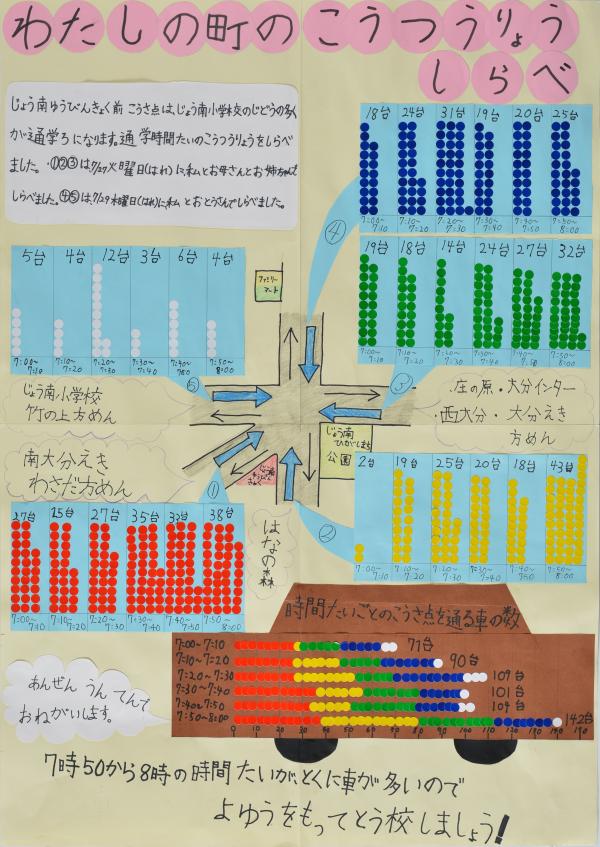 わたしの町のこうつうりょう
しらべ
じょう南ゆうびんきょく前こうさ点は、じょう南小学校のじどうの多く
が通学ろになります。通学時間たいのこうつうりょうをしらべ
ました。①②③は7/27火曜日(はれ)に、私とお母さんとお姉ちゃんで
しらべました。④⑤は7/29木曜日(はれ)に私とおとうさんでしらべました。
18台 24台 31台 19台 20台 25台
7:00〜7:10 7:10〜7:20 7:20〜7:30 7:30〜7:40 7:40〜7:50 7:50〜8:00
④
19台 18台 14台 24台 27台 32台
7:00〜7:10 7:10〜7:20 7:20〜7:30 7:30〜7:40 7:40〜7:50 7:50〜8:00
③
5台 4台 12台 3台 6台 4台
7:00〜7:10 7:10〜7:20 7:20〜7:30 7:30〜7:40 7:40〜7:50 7:50〜8:00
⑤
ファミリーマート
じょう南小学校
竹の上方めん
・庄の原・大分インター
・西大分・大分えき
方めん
じょう南
ひがしまち
公園
南大分えき
わさだ方めん
①
②
はなの森
27台 25台 27台 35台 33台 38台
7:00〜7:10 7:10〜7:20 7:20〜7:30 7:30〜7:40 7:40〜7:50 7:50〜8:00
2台 19台 25台 20台 18台 43台
7:00〜7:10 7:10〜7:20 7:20〜7:30 7:30〜7:40 7:40〜7:50 7:50〜8:00
時間たいごとのこうさ点を通る車の数
7:00〜7:10 71台
7:10〜7:20 90台
7:20〜7:30 109台
7:30〜7:40 101台
7:40〜7:50 104台
7:50〜8:00 142台
0 10 20 30 40 50 60 70 80 90 100 110 120 130 140 150
あんぜんうんてんで
おねがいします。
7時50から8時の時間たいが、とくに車が多いので
よゆうをもってとう校しましょう!